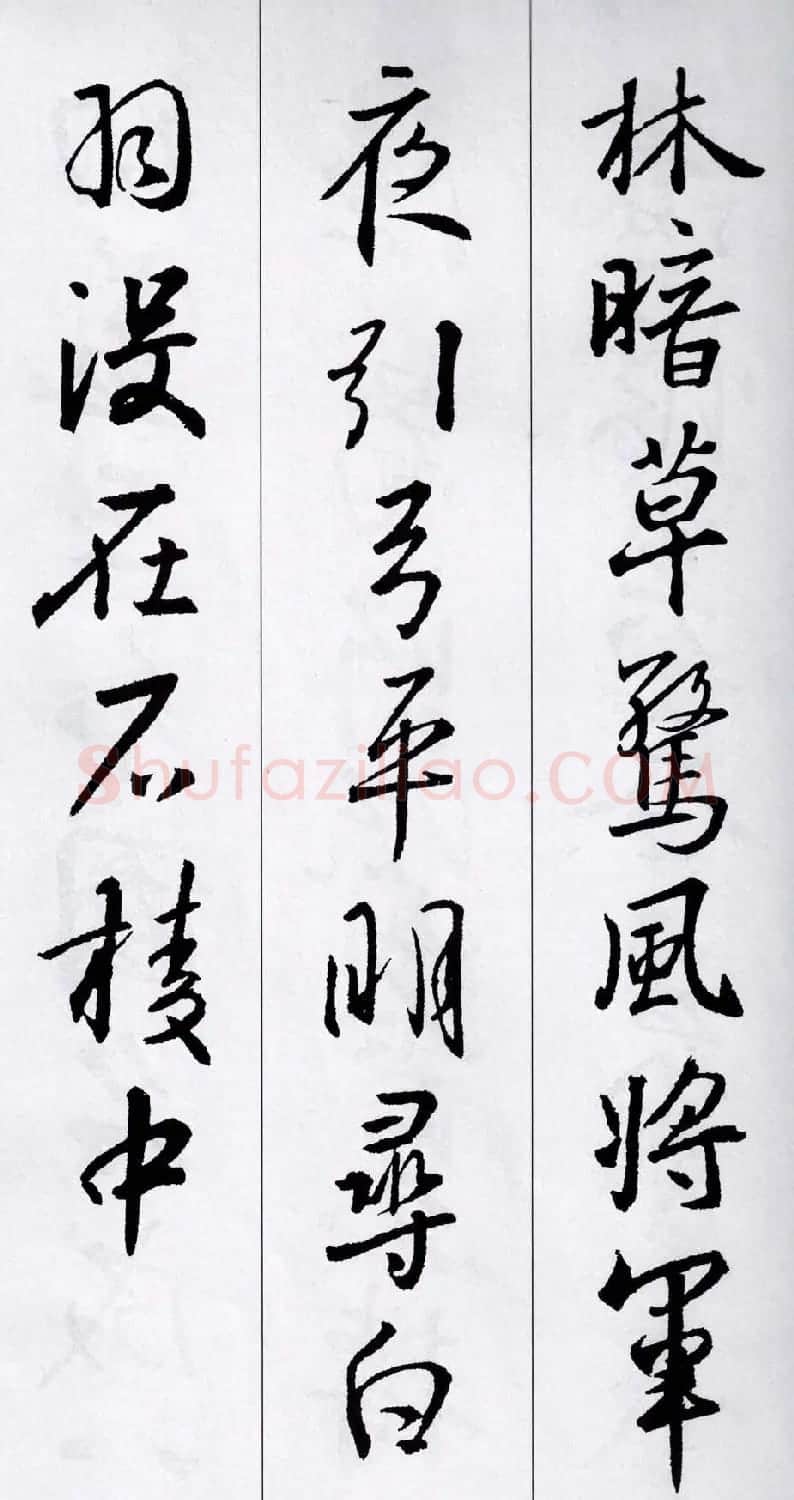 林暗草驚風將軍
夜引弓平明尋白
羽没在石棱中
Shufaziliao.COM